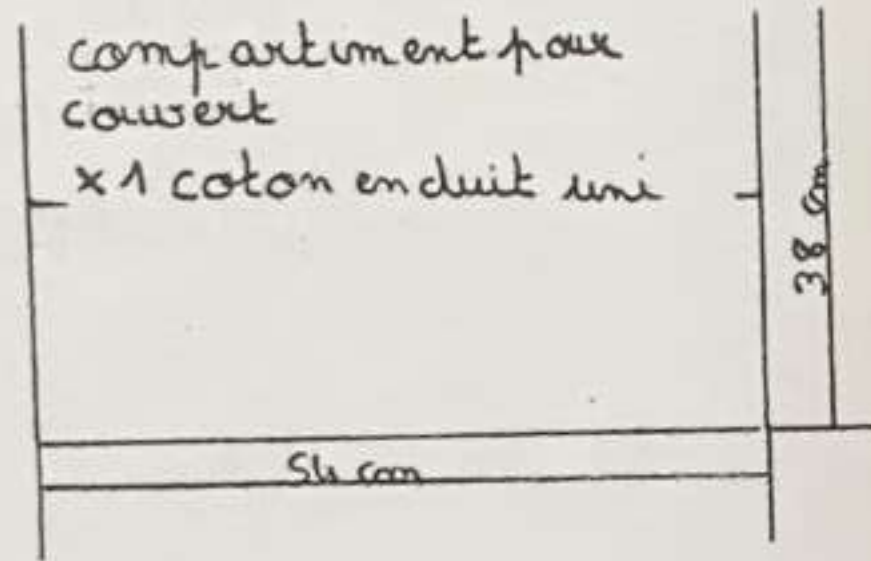 compartiment pour
couvert
x1 coton enduit uni
38 cm
54 cm